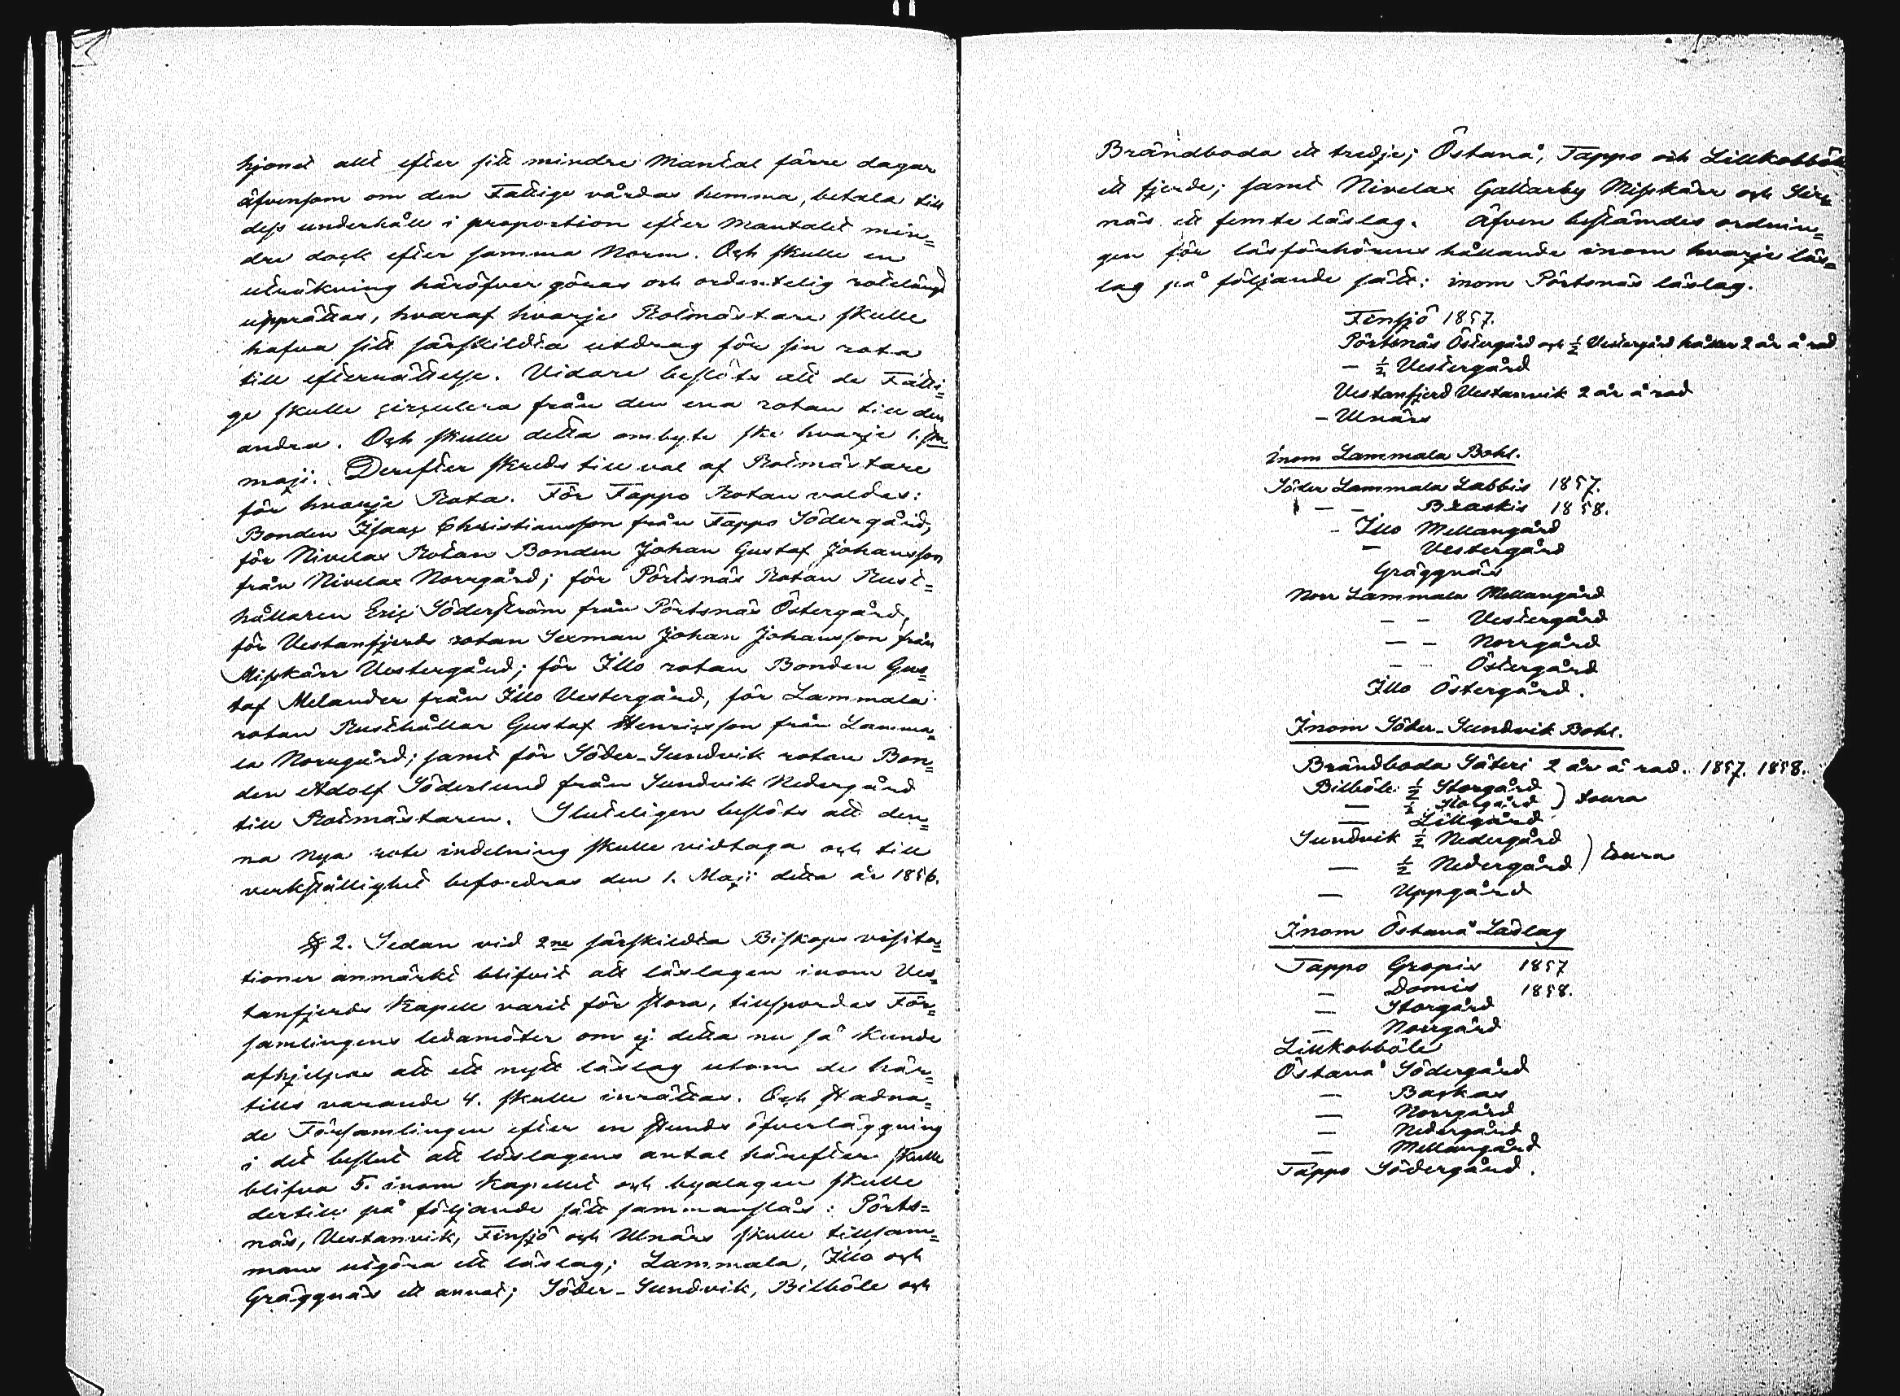 hjonet allt efter sitt mindre Mantal färre dagar
äfvensom om den Fattige vårdas hemma, betala till
dess underhåll i proportion efter Mantalet min=
dre dock efter samma Norm. Och skulle en
uträkning häröfver göras och ordentelig rotelängd
upprättas, hvaraf hvarje Rotmästare skulle
hafva sitt särskildta utdrag för sin rota
till efterrättelse. Vidare beslöts att de Fatti=
ge skulle circulera från den ena rotan till den
andra. Och skulle detta ombyte ske hvarje 1.sta
maji. Derefter skreds till val af Rotmästare
för hvarje Rota. För Tappo Rotan valdes:
Bonden Isaac Christiansson från Tappo Södergård,
för Nivelax Rotan Bonden Johan Gustaf Johansson
från Nivelax Norrgård; för Pörtsnäs Rotan Rust=
hållaren Eric Söderström från Pörtsnäs Östergård,
för Vestanfjerds rotan Sexman Johan Johansson från
Misskärr Vestergård; för Illo rotan Bonden Gus=
taf Melander från Illo Vestergård, för Lammala
rotan Rusthållar Gustaf Henricsson från Lamma=
la Norrgård; samt för Söder-Sundvik rotan Bon=
den Adolf Söderlund från Sundvik Nedergård
till Rotmästaren. Sluteligen beslöts att den=
na nya rote indelning skulle vidtaga och till
verkställighet befordras den 1. Maji detta år 1856.
§ 2. Sedan vid 2ne särskildta Biskops visita=
tioner anmärkt blifvit att läslagen inom Ves=
tanfjerds Kapell varit för stora, tillspordes För=
samlingens ledamöter om ej detta nu så kunde
afhjelpas att ett nytt läslag utom de här=
tills varande 4. skulle inrättas. Och stadna=
de Församlingen efter en stunds öfverläggning
i det beslut att läslagens antal härefter skulle
blifva 5. inom Kapellet och byalagen skulle
dertill på följande sätt sammanslås: Pörts=
näs, Vestanvik, Finsjö och Ulnäs skulle tillsam=
mans utgöra ett läslag; Lammala, Illo och
Gräggnäs ett annat; Söder-Sundvik, Billböle och
Brändboda ett tredje; Östanå, Tappo och Lillkobböle
ett fjerde; samt Nivelax Galtarby Misskärr och
näs ett femte läslag. Äfven bestämdes ordnin=
gen för läsförhörens hållande inom hvarje läs=
lag på följande sätt: inom Pörtsnäs läslag.
Finsjö 1857.
Pörtsnäs Östergård och ½ Vestergård håller 2 år å rad
— ½ Vestergård
Vestanfjerd Vestanvik 2 år å rad
— Ulnäs
inom Lammala Bohl.
Söder Lammala Labbis 1857.
— — Braskis 1858.
- Illo Mellangård
— Vestergård
Gräggnäs
Norr Lammala Mellangård
— — Vestergård
— — Norrgård
— — Östergård
Illo Östergård.
Inom Söder-Sundvik Bohl.
Brändboda Säteri 2 år å rad. 1857. 1858.
Billböle ½ Storgård
— ½ Storgård ) toura
— Lillgård
Sundvik ½ Nedergård
— ½ Nedergård ) toura
— Uppgård
Inom Östanå Läslag
Tappo Gropis 1857
— Domis 1858.
— Storgård
— Norrgård
Lillkobböle
Östanå Södergård
— Backas
— Norrgård
— Nedergård
— Mellangård
Tappo Södergård.